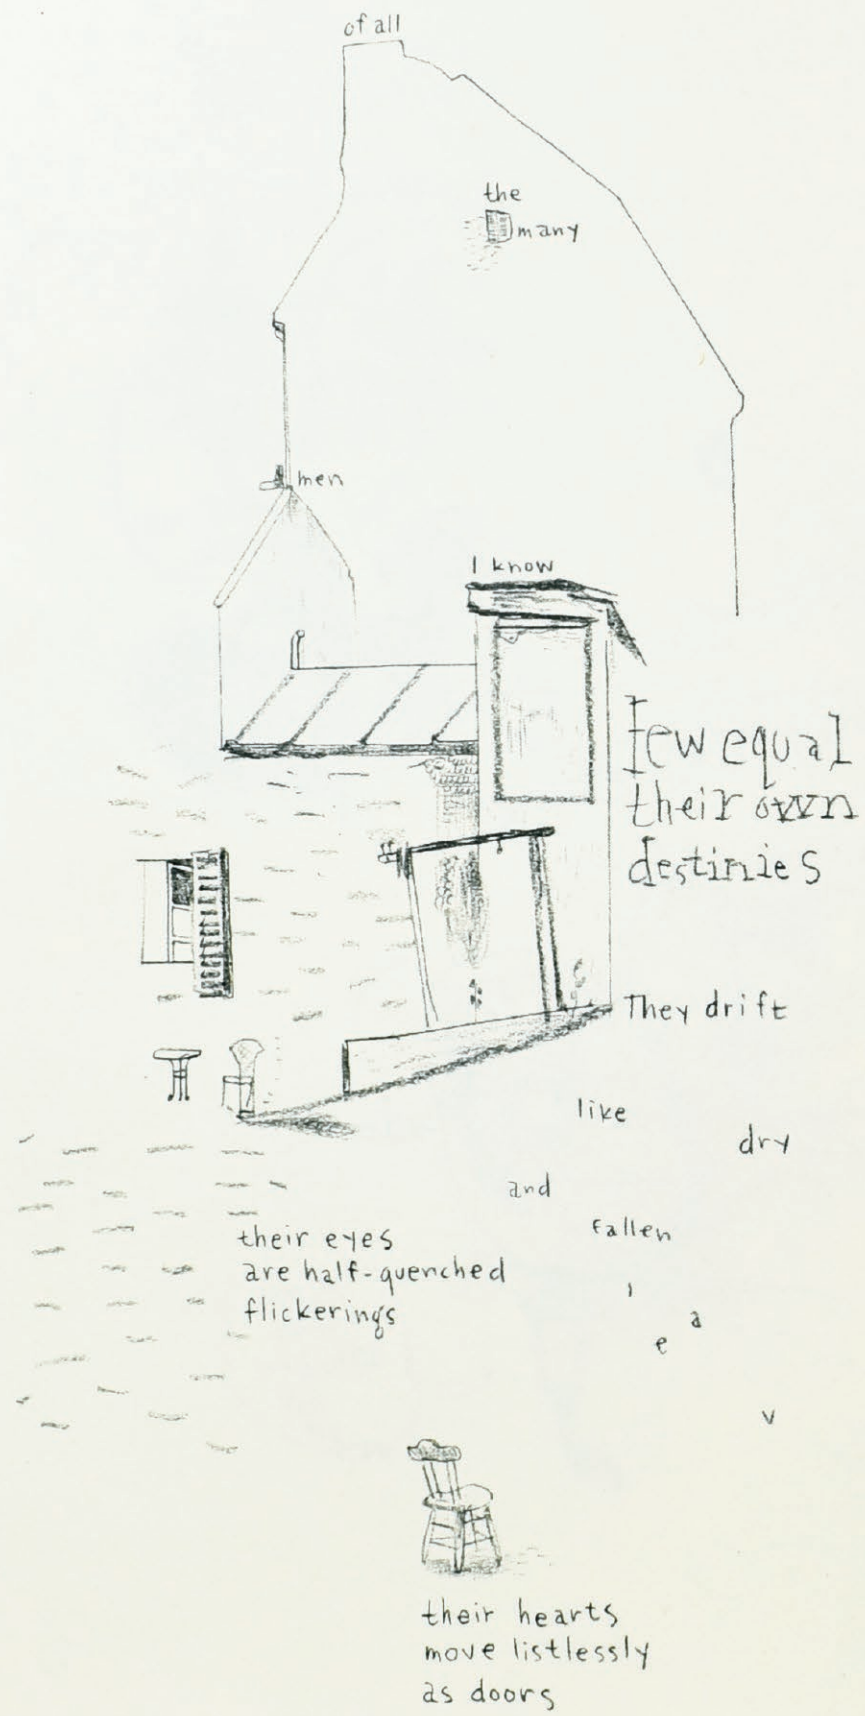 of all
the
many
men
I know
few equal
their own
destinies
They drift
like
dry
and
fallen
l
a
e
v
their eyes
are half-quenched
flickerings
their hearts
move listlessly
as doors